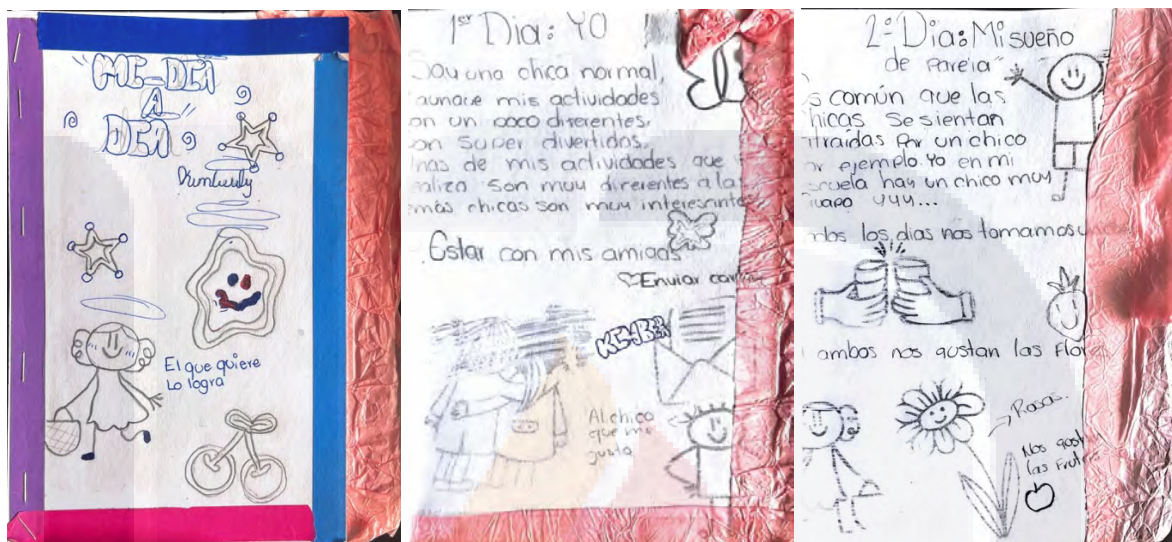 "MI-DÍA
A
DÍA"
El que quiere
Lo logra
1er Dia: Yo
Soy una chica normal,
aunque mis actividades
on un poco diferentes,
on super divertidos,
nas de mis actividades que
alizo son muy diferentes a las
más chicas son muy interesante
Estar con mis amigas
Enviar
Al chico
que me
gusta
2º Dia: Mi sueño
de Pareja"
s común que las
hicas se sientan
traídas por un chico
or ejemplo yo en mi
scuela hay un chico muy
uapo yyy...
odos los dias nos tomamos
ambos nos gustan las Flor
Rosas.
Nos gust
las Frut